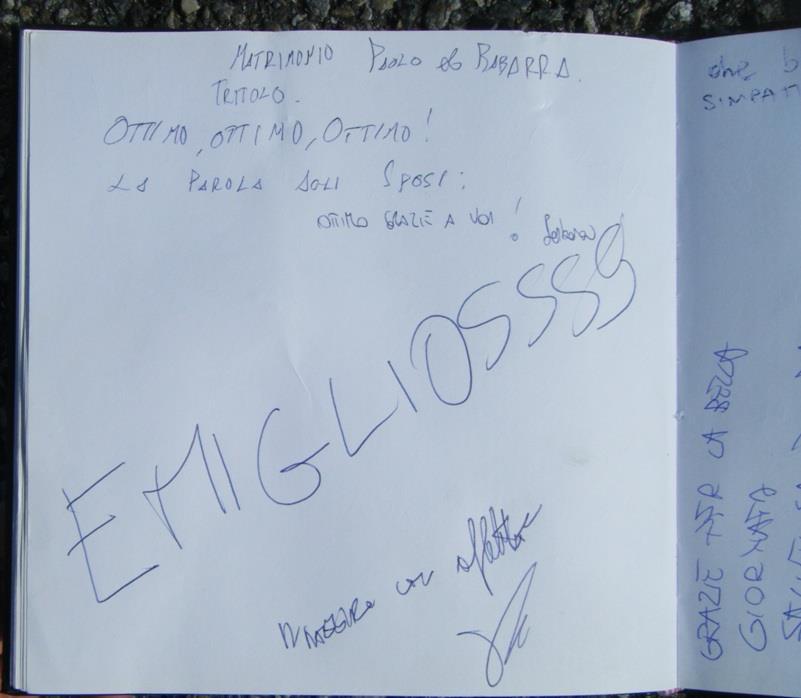 MATRIMONIO PAOLO & BABARRA.
TRITOLO.
OTTIMO, OTTIMO, OTTIMO!
LA PAROLA AGLI SPOSI:
OTTIMO GRAZIE A VOI!
EMIGLIOSSSS
con affetto
che b
SIMPATI
GRAZIE PER LA BELLA
GIORNATA